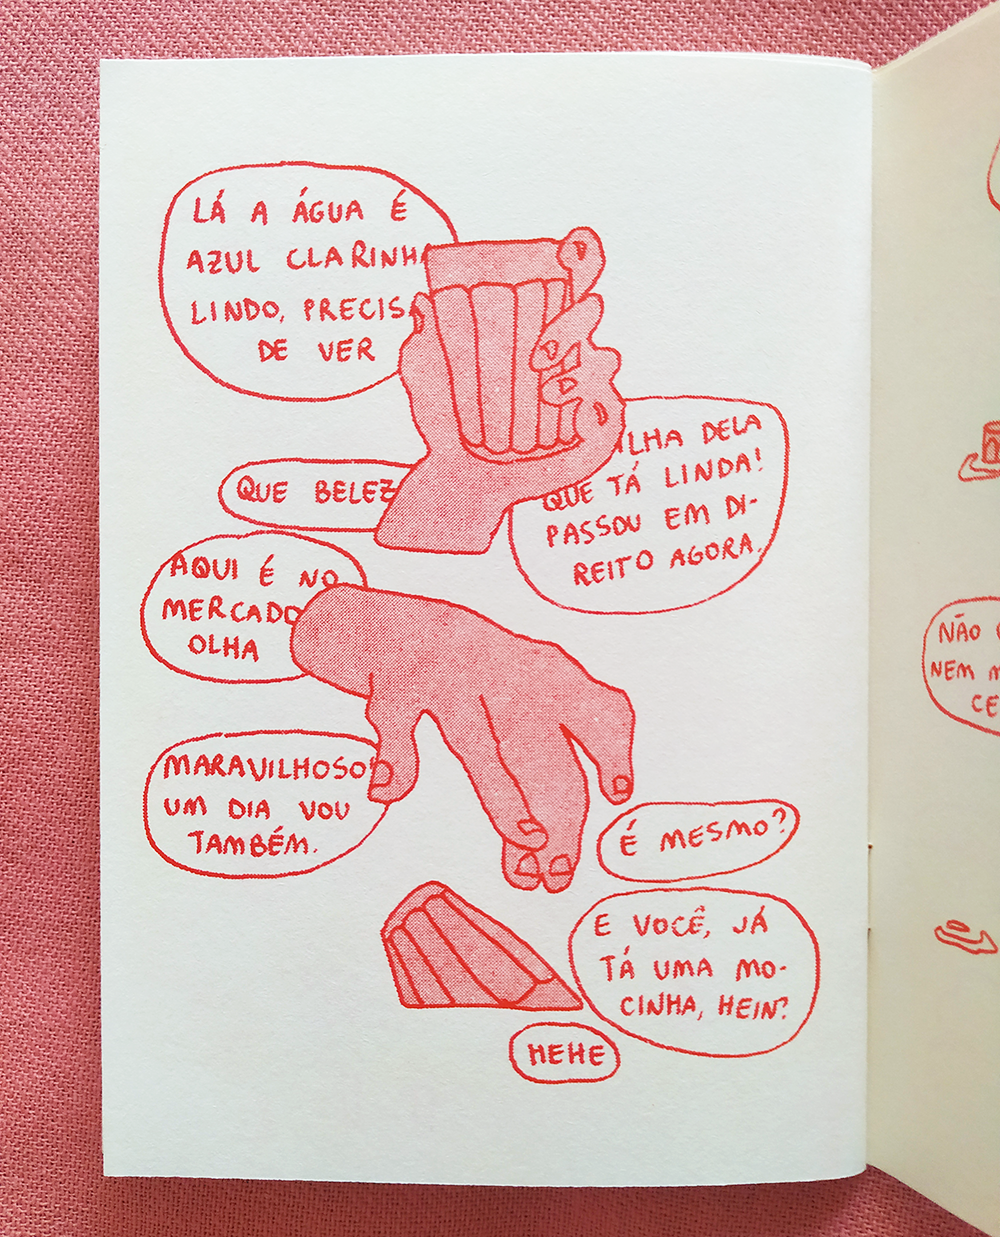 LÁ A ÁGUA É
AZUL CLARINHA
LINDO, PRECISA
DE VER
QUE BELEZ
ILHA DELA
QUE TÁ LINDA!
PASSOU EM DI-
REITO AGORA.
AQUI É NO
MERCADO
OLHA
MARAVILHOSO
UM DIA VOU
TAMBÉM.
É MESMO?
E VOCÊ, JÁ
TÁ UMA MO-
CINHA, HEIN?
HEHE
NÃO
NEM M
CE